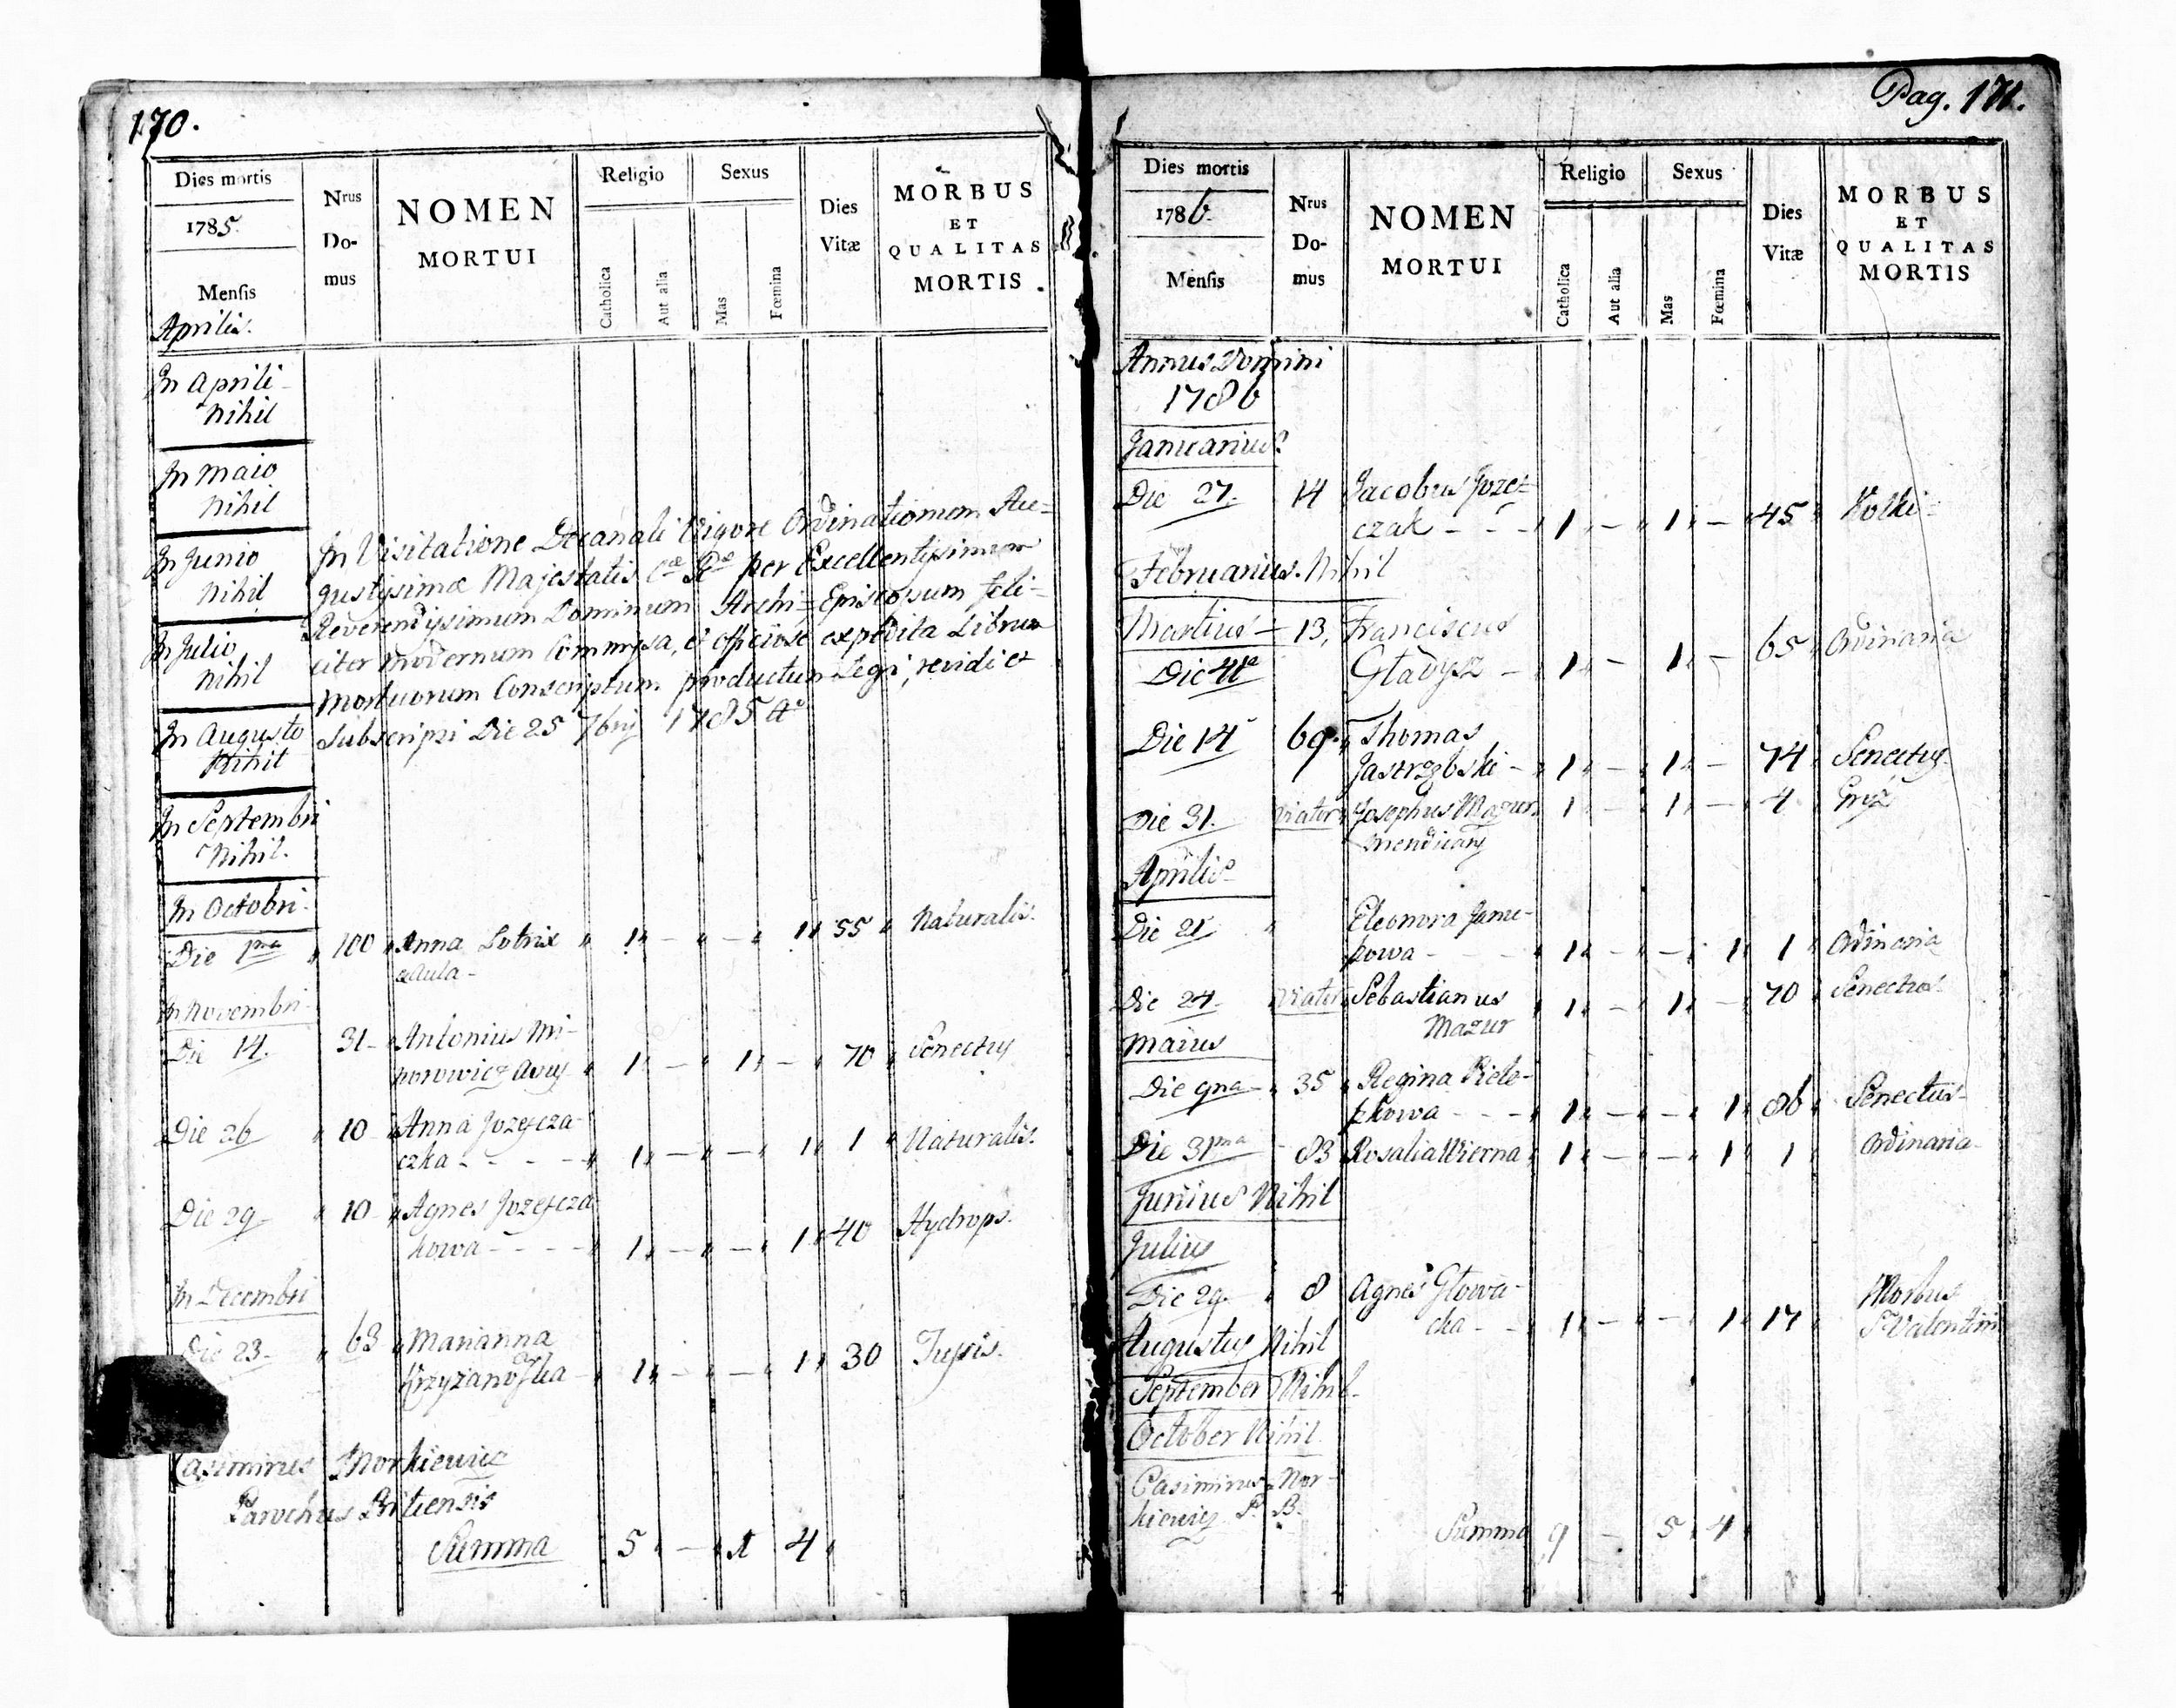 170.
Dies mortis
1785.
Mensis
Aprilis.
Nrus Do-mus
NOMEN
MORTUI
Religio
Catholica
Aut alia
Sexus
Mas
Fœmina
Dies
Vitæ
MORBUS
ET
QUALITAS
MORTIS.
In Aprili
Nihil
In Maio
Nihil
In Junio
Nihil
In Julio
Nihil
In Augusto
Nihil
In Septembri
Nihil.
In Visitatione Decanali Vigore Ordinationum Au=
gustissimæ Majestatis per Excellentissimum
Reverendissimum Dominum Archi=Episcopum feli=
citer modernum Commissa, et officiose expedita Librum
Mortuorum Conscriptum productum Legi, revidi et
Subscripsi Die 25 7bris 1785 Ao
In Octobri.
Die 1ma 100 Anna Lotrix 1 - - 1 55 Naturalis.
In Novembri.
Die 14. 31 Antonius Mi-
horowicz 1 - 1 - 70 Senectus
Die 26 10 Anna Jozefcza-
czka - - - - 1 - - 1 1 Naturalis.
Die 29 10 Agnes Jozefcza
kowa - - - - 1 - - 1 40 Hydrops.
In Decembri
Die 23. 63 Marianna
Krzyżanoska 1 - - 1 30 Tussis.
Casimirus Norkiewicz
Parochus
Summa 5 - 1 4
Pag. 171.
Dies mortis
1786.
Mensis
Nrus Do-mus
NOMEN
MORTUI
Religio
Catholica
Aut alia
Sexus
Mas
Fœmina
Dies
Vitæ
MORBUS
ET
QUALITAS
MORTIS
Annus Domini
1786
Januarius
Die 27. 14 Jacobus Jozef=
czak - - - 1 - 1 - 45 Kolki
Februarius. Nihil
Martius 13, Franciscus
Die Gładysz - 1 - 1 - 65 Ordinaria
Die 14 69. Thomas
Jastrzębski - 1 - 1 - 74 Senectus
Die 31. Viator Josephus Mazur 1 1 - 4
mendicans
Aprilis
Die 21 Eleonora
kowa - - - 1 - - 1 1 Ordinaria
Die 24. Viator Sebastianus 1 - 1 - 70 Senectus
Mazur
Maius
Die 9na 35 Regina
1 - - 1 86 Senectus
Die 31ma 83 Rosalia Wierna 1 - - 1 1 Ordinaria
Junius Nihil
Julius
Die 29. 8 Agnes Głowa-
cka - - 1 - - 1 17 Morbus
S. Valentini
Augustus Nihil
September Nihil
October Nihil
Casimirus Nor-
kiewicz P. B.
Summa 9 - 5 4